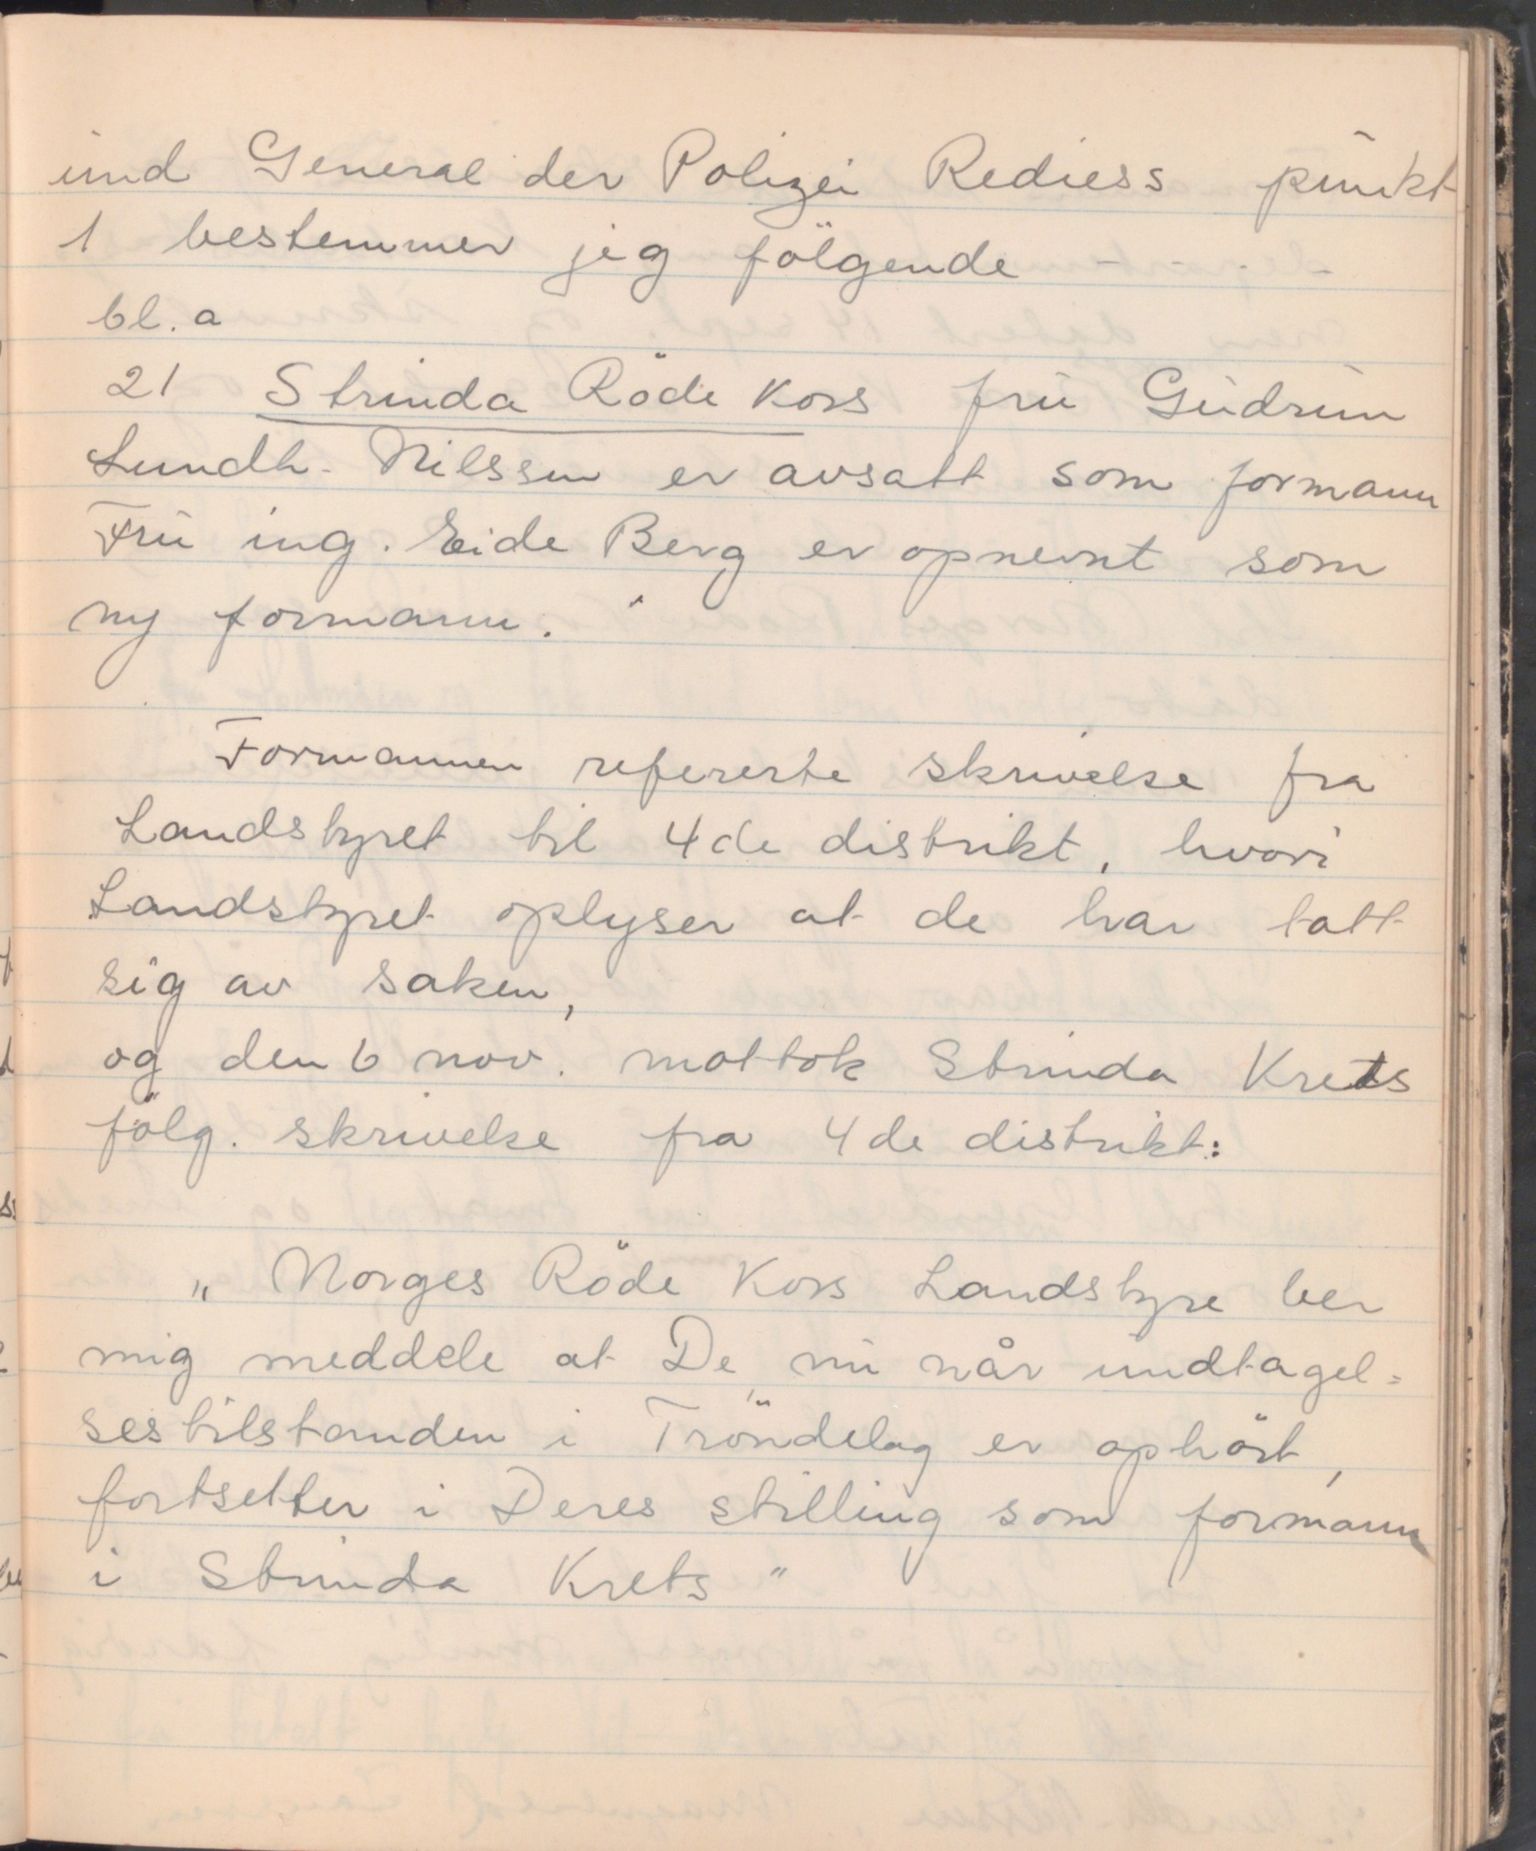 und General der Polizei Rediess punkt
1 bestemmer jeg fölgende
bl. a
21 Strinda Röde Kors fru Gudrun
Lundh-Nilssen er avsatt som formann
Fru ing. Eide Berg er opnevnt som
ny formann."
Formannen refererte skrivelse fra
Landstyret til 4de distrikt, hvori
Landstyret oplyser at de har tatt
sig av saken,
og den 6 nov. mottok Strinda Krets
fölg. skrivelse fra 4de distrikt:
„Norges Röde Kors Landstyre ber
mig meddele at De, nu når undtagel=
sestilstanden i Tröndelag er ophört,
fortsetter i Deres stilling som formann
i Strinda Krets"